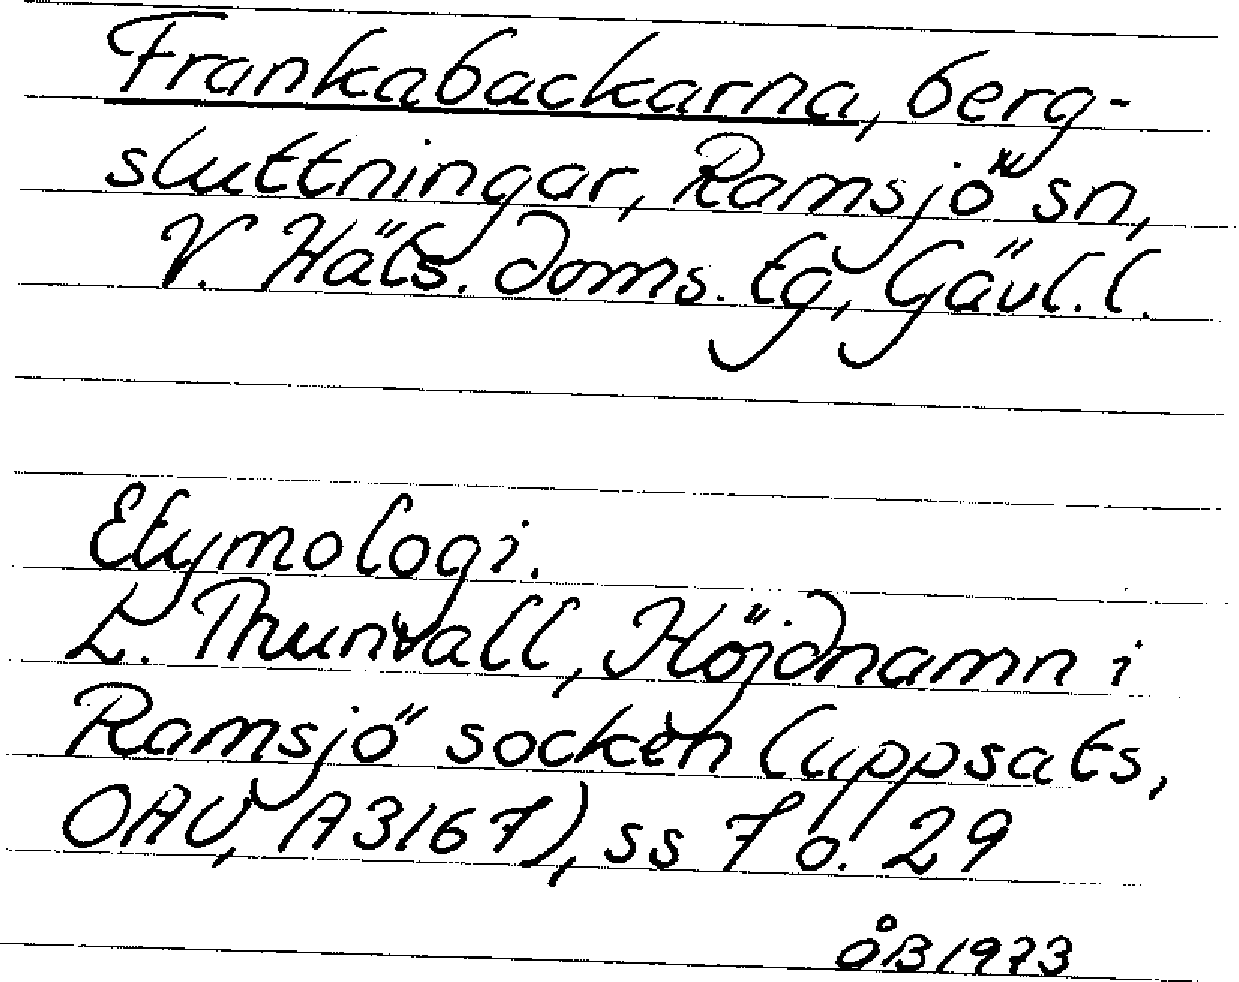 Frankabackarna, berg-
sluttningar, Ramsjö sn,
V. Häls. doms. tg, Gävl. l.
Etymologi.
L. Thunvall, Höjdnamn i
Ramsjö socken (uppsats,
OAU, A3167), ss 7 o. 29
ÅB 1973